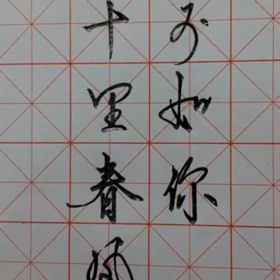 十里春风
不如你